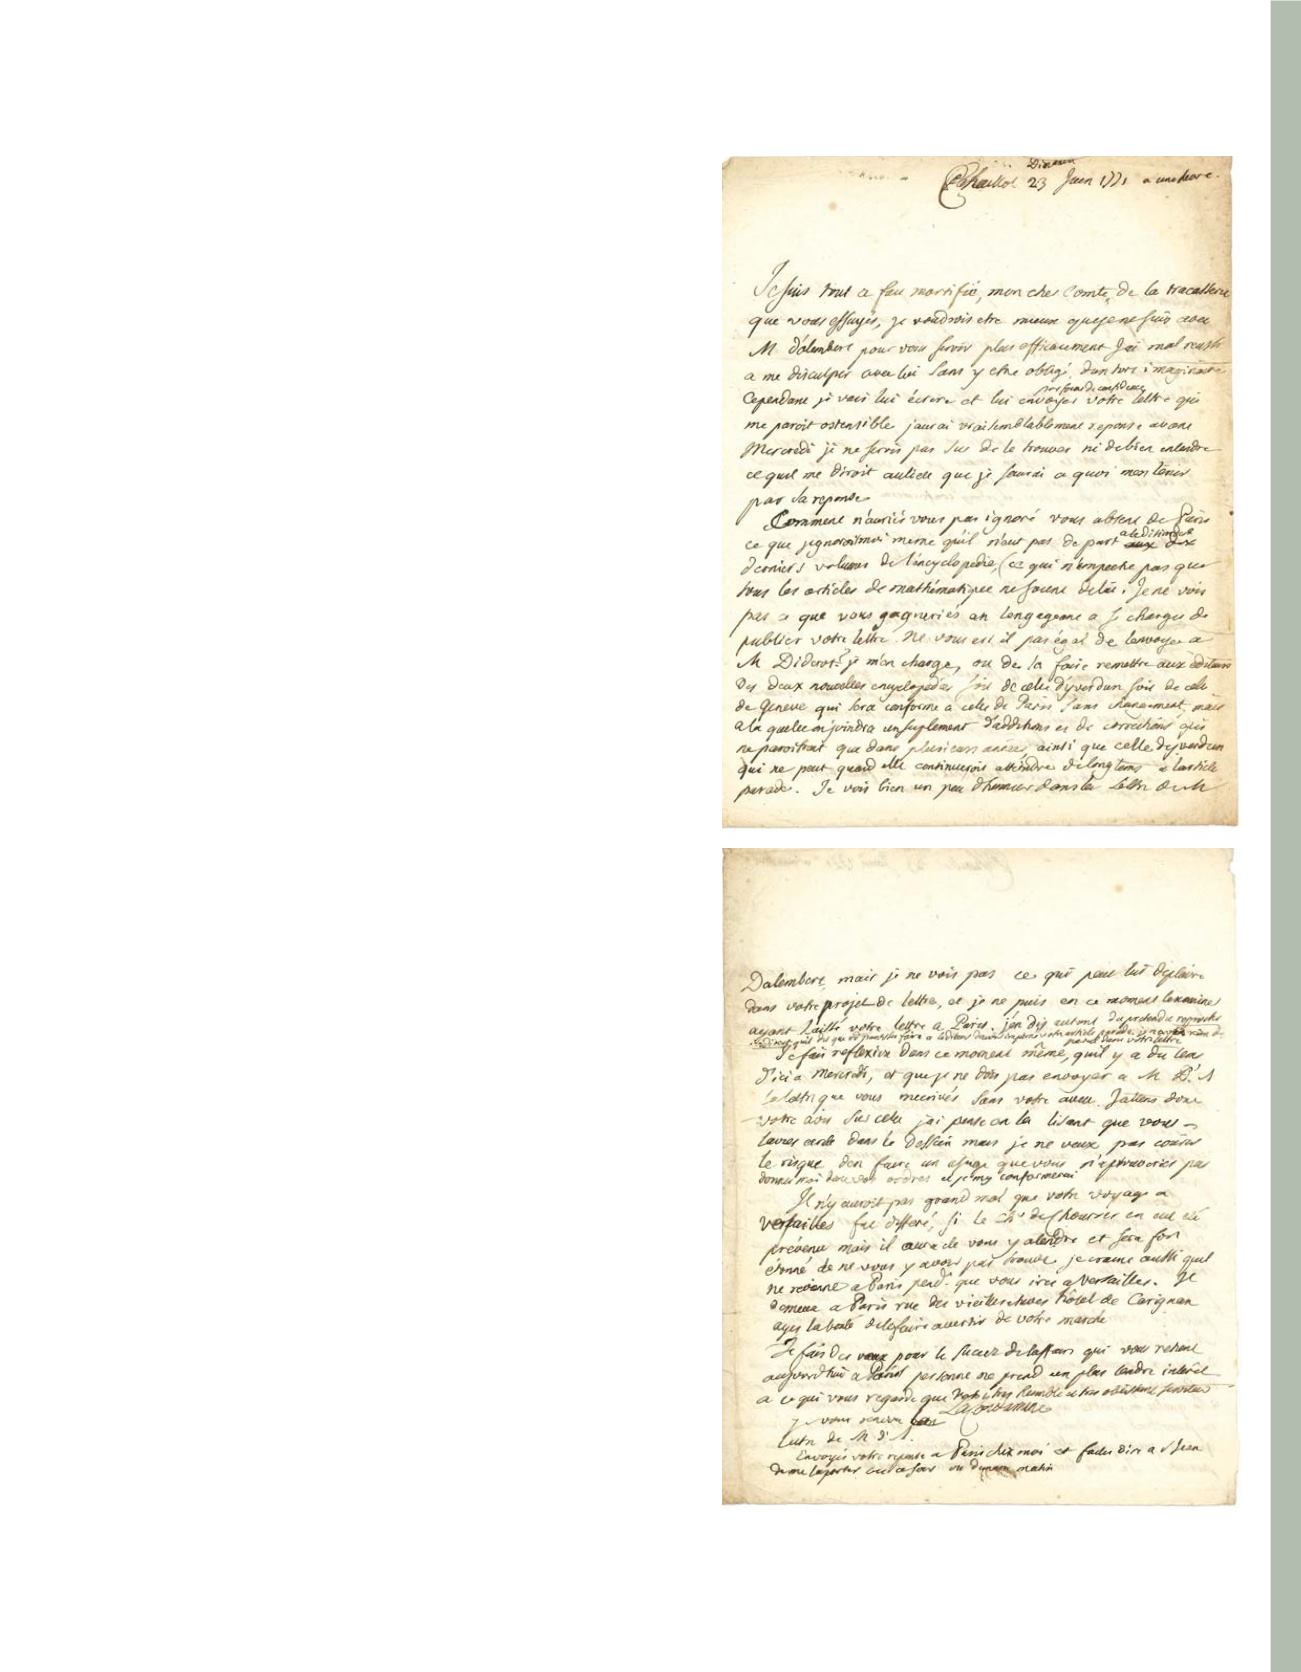 Dimanche
Chaillot 23 Juin 1771 a une heure.
Je suis tout a fait mortifié, mon cher Comte, de la tracasserie
que vous essuyés, je voudrois etre mieux que je ne suis avec
M d'alembert pour vous servir plus efficacement J'ai mal reussi
a me disculper avec lui sans y etre obligé, d'un tort imaginaire
par forme de confidence
Cependant je vais lui écrire et lui envoyer votre lettre qui
me paroit ostensible j'aurai vraisemblablement reponse avant
Mercredi je ne serois pas sur de le trouver ni de bien entendre
ce quil me diroit aulieu que je saurai a quoi m'en tenir
par sa reponse
Comment n'auriés vous pas ignoré vous absent de Paris
ce que j'ignorois moi meme qu'il n'eut pas de part
derniers volumes de l'encyclopedie, (ce qui n'empeche pas que
tous les articles de mathématique ne soient de lui; Je ne vois
pas a que vous gagneriés en l'engageant a se charger de
publier votre lettre. Ne vous est il pas égal de l'envoyer a
M Diderot? je m'en charge, ou de la faire remettre aux éditeurs
des deux nouvelles encyclopedies soit de celle d'yverdun soit de celle
de Geneve qui sera conforme a celle de Paris sans changement, mais
a la quelle on joindra un suplement d'additions et de corrections qui
ne paroitroit que dans plusieurs années, ainsi que celle d'yverdun
qui ne peut quand elle continueroit atteindre de longtems a l'article
parade. Je vois bien un peu d'humeur dans la lettre de M
Dalembert, mais je ne vois pas ce qui peut lui deplaire
dans votre projet de lettre, et je ne puis en ce moment l'examiner
ayant laissé votre lettre a Paris. j'en dis autant du pretendu reproche
Je fais reflexion dans ce moment même, quil y a du tems
d'ici a mercredi, et que je ne dois pas envoyer a M D'A
la lettre que vous m'ecrivés sans votre aveu. J'attens donc
votre avis sur cela j'ai pensé en la lisant que vous
l'aviés ecrite dans le dessein mais je ne veux pas courir
le risque d'en faire un usage que vous n'aprouveriés pas
donnés moi donc vos ordres et je m'y conformerai
Il n'y auroit pas grand mal que votre voyage a
versailles fut differé, si le Chr de en eut été
prévenu mais il aura de vous y atendre et sera fort
étonné de ne vous y avoir pas trouvé. je crains aussi quil
ne revienne a Paris pendt que vous irés a Versailles. Je
demeure a Paris rue des vieilles etuves hôtel de Carignan
ayés la bonté de le faire avertir de votre marche
Je fais des vœux pour le succez de l'affaire qui vous retient
aujourd'hui a Paris personne ne prend un plus tendre intérêt
a ce qui vous regarde que Votre tres humble et tres obeissant serviteur
La Condamine
je vous renvoie
lettre de M d'A.
Envoyés votre reponse a Paris chez moi et faites dire a St Jean
de me l'aporter ce soir ou demain matin